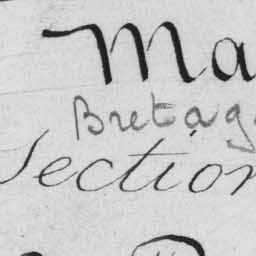 Ma
Bretag
Section